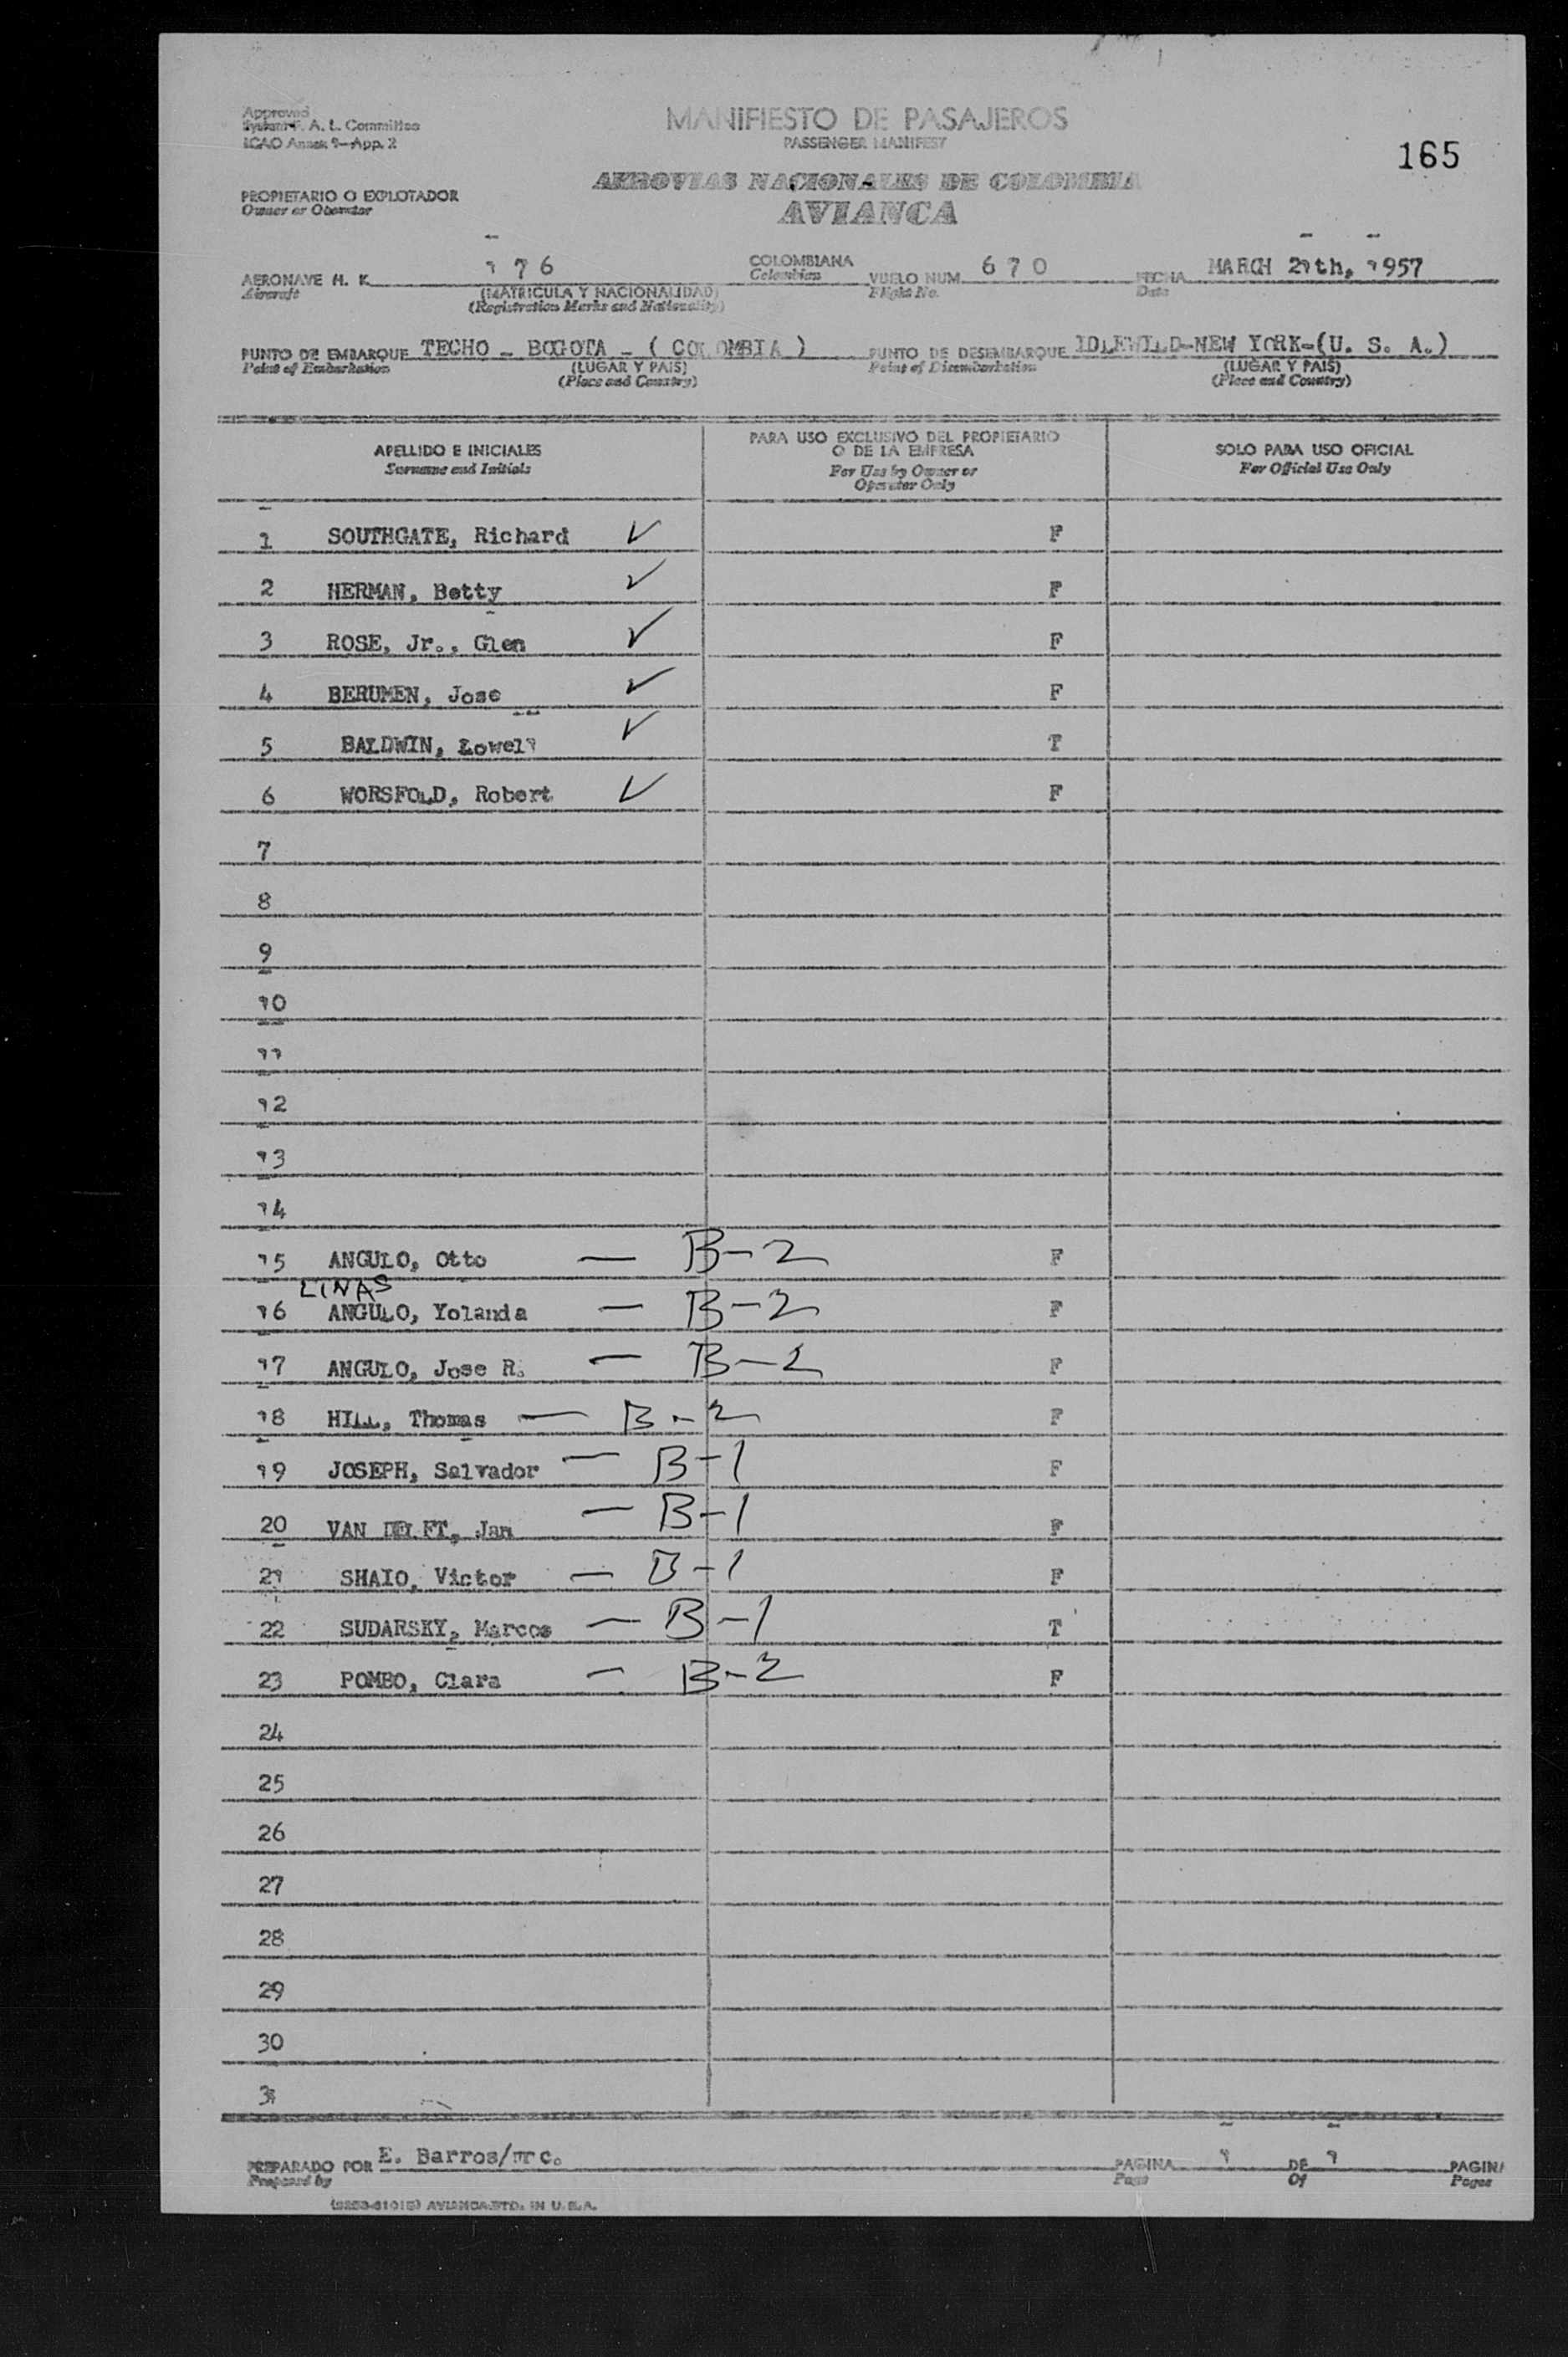 Approved
System F. A. L. Committee
ICAO Annex 9—App. 2
MANIFIESTO DE PASAJEROS
PASSENGER MANIFEST
165
PROPIETARIO O EXPLOTADOR
Owner or Operator
AEROVIAS NACIONALES DE COLOMBIA
AVIANCA
AERONAVE H. K. 176 COLOMBIANA VUELO NUM. 670 FECHA MARCH 21th, 1957
Aircraft (MATRICULA Y NACIONALIDAD) Colombian Flight No. Date
(Registration Marks and Nationality)
PUNTO DE EMBARQUE TECHO - BOGOTA - ( COLOMBIA ) PUNTO DE DESEMBARQUE IDLEWILD-NEW YORK-(U. S. A.)
Point of Embarkation (LUGAR Y PAIS) Point of Disembarkation (LUGAR Y PAIS)
(Place and Country) (Place and Country)
APELLIDO E INICIALES PARA USO EXCLUSIVO DEL PROPIETARIO SOLO PARA USO OFICIAL
Surname and Initials O DE LA EMPRESA For Official Use Only
For Use by Owner or
Operator Only
1 SOUTHGATE, Richard ✓ F
2 HERMAN, Betty ✓ F
3 ROSE, Jr., Glen ✓ F
4 BERUMEN, Jose ✓ F
5 BALDWIN, Lowell ✓ T
6 WORSFOLD, Robert ✓ F
7
8
9
10
11
12
13
14
15 ANGULO, Otto — B-2 F
LINAS
16 ANGULO, Yolanda — B-2 F
17 ANGULO, Jose R. — B-2 F
18 HILL, Thomas — B-2 F
19 JOSEPH, Salvador — B-1 F
20 VAN DELFT, Jan — B-1 F
21 SHAIO, Victor — B-1 F
22 SUDARSKY, Marcos — B-1 T
23 POMBO, Clara — B-2 F
24
25
26
27
28
29
30
31
PREPARADO POR E. Barros/mrc. PAGINA 1 DE 1 PAGINA
Prepared by Page Of Pages
AVIANCA PTD. IN U.S.A.